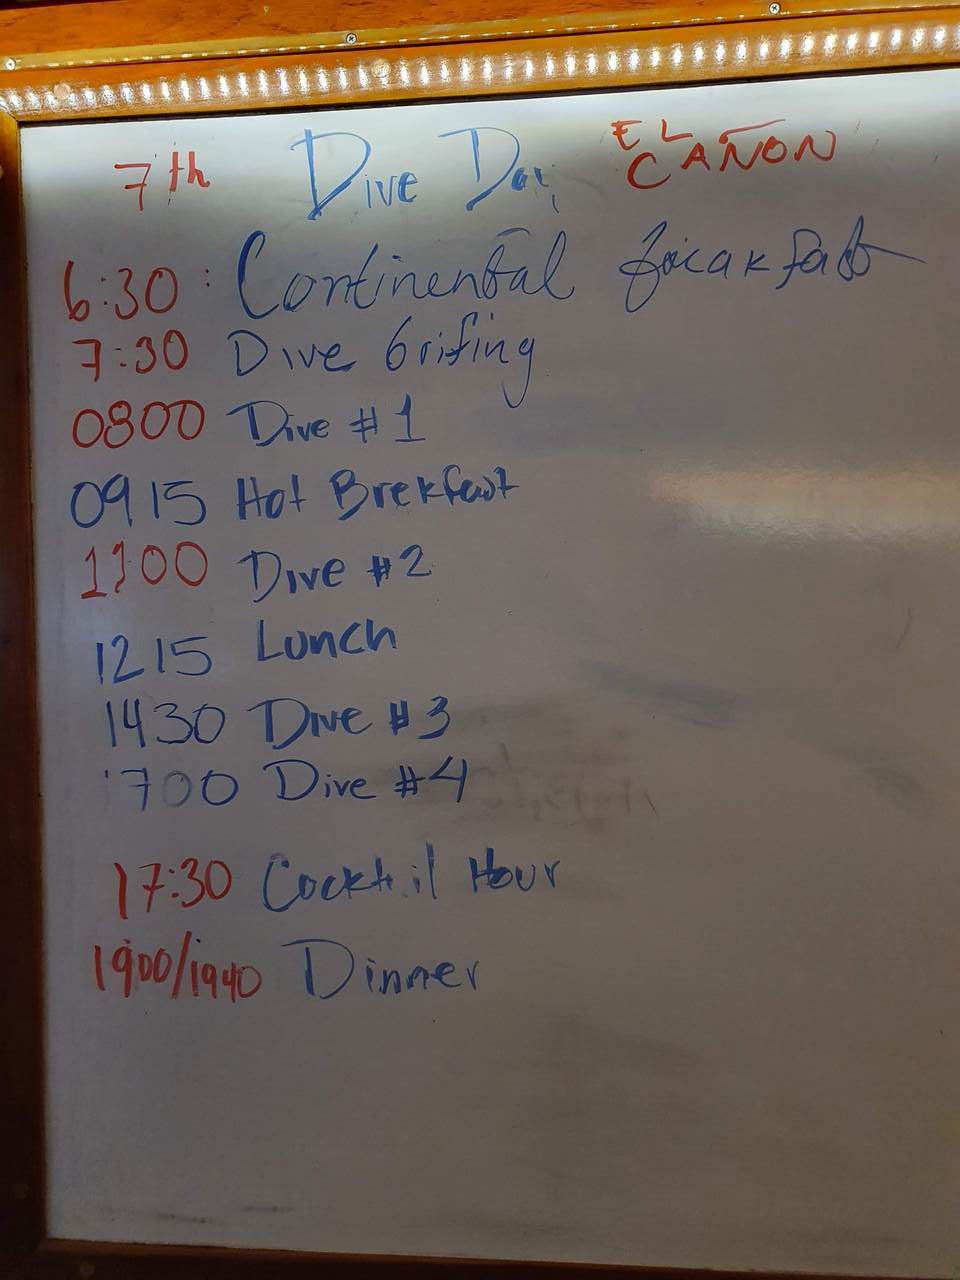 7th Dive Day EL CAÑON
6:30 : Continental breakfast
7:30 Dive brifing
0800 Dive #1
0915 Hot Brekfast
1100 Dive #2
1215 Lunch
1430 Dive #3
1700 Dive #4
17:30 Cocktail Hour
1900/1940 Dinner